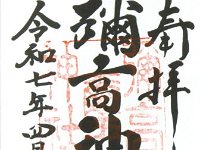 奉拝
彌高神
令和七年四